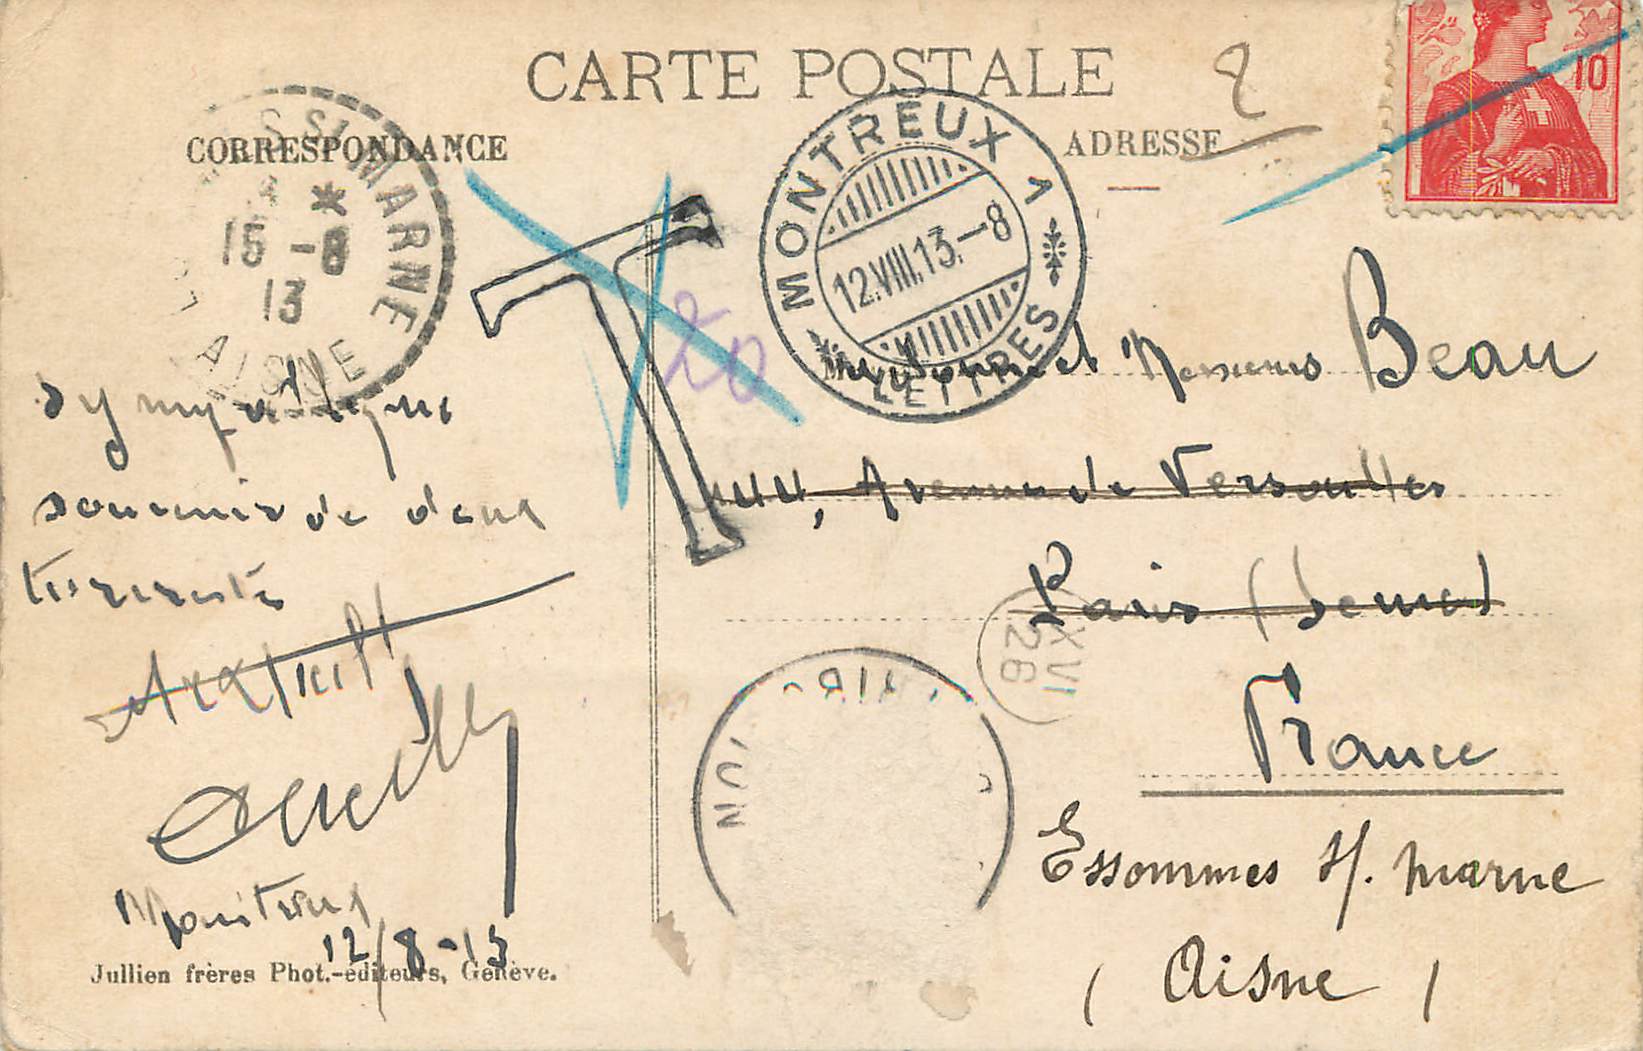 CARTE POSTALE
CORRESPONDANCE
ADRESSE
10
MONTREUX 1
12.VIII.13.-8
LETTRES
SSI MARNE
15 -8
13
AISNE
T
20
Messieurs Beau
44, Avenue de Versailles
Paris (Seine)
France
Essommes s/. marne
( Aisne )
XVI
26
Sympathique
souvenir de deux
touristes
Montreux
12/8-13
Jullien frères Phot.-éditeurs, Genève.